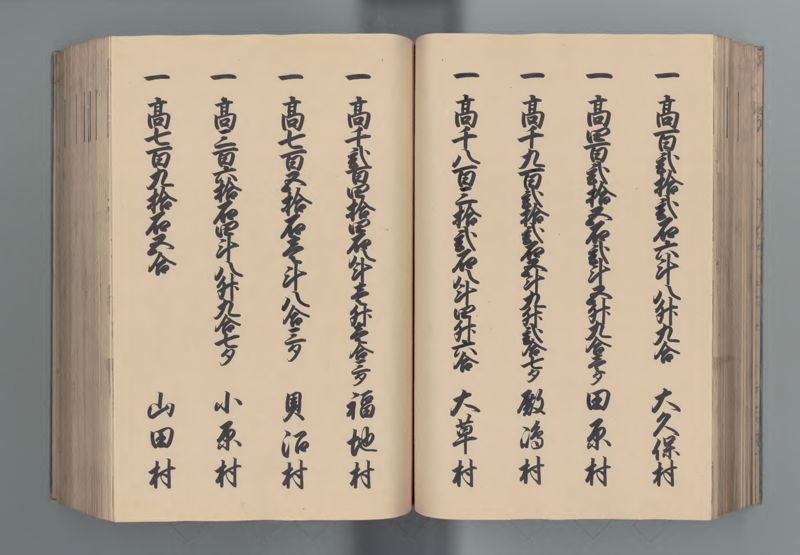 一 高百弐拾弐石六斗八升九合 大久保村
一 高四百弐拾五石弐斗五升九合七夕 田原村
一 高千九百弐拾弐石五斗九升弐合七夕 殿嶋村
一 高千八百三拾弐石八斗四升六合 大草村
一 高千弐百四拾四石八斗壱升壱合三夕 福地村
一 高七百五拾石壱斗八合三夕 貝沼村
一 高三百六拾石四斗八升九合七夕 小原村
一 高七百九拾石五合 山田村